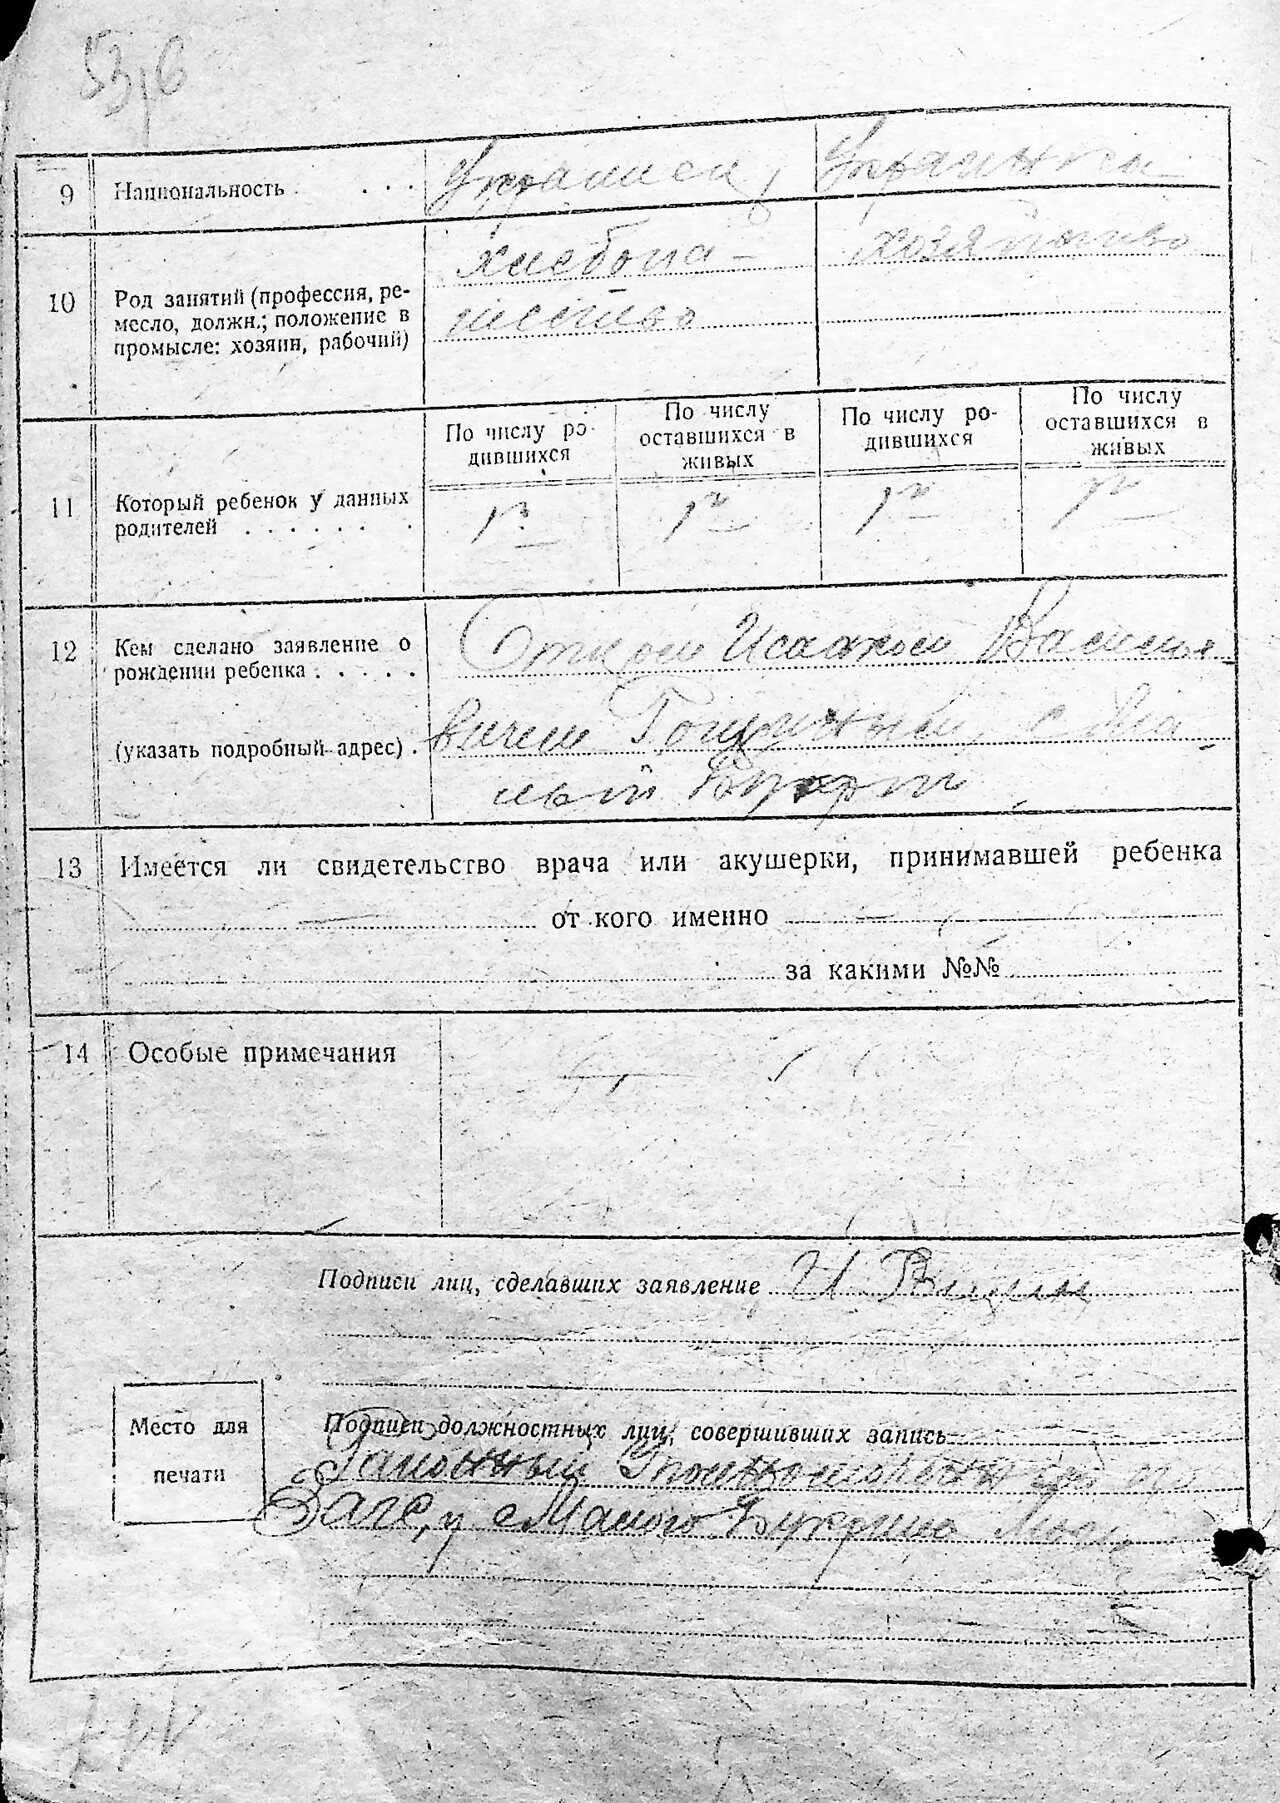 53
9 Национальность . . . . Украинец, Украинка
10 Род занятий (профессия, ре-
месло, должн.; положение в
промысле: хозяин, рабочий)
хлебопа-
шество
хозяйство
По числу ро-
дившихся
По числу
оставшихся в
живых
По числу ро-
дившихся
По числу
оставшихся в
живых
11 Который ребенок у данных
родителей . . . . . . .
1й 1й 1й 1й
12 Кем сделано заявление о
рождении ребенка . . . . .
(указать подробный адрес) .
Отцом Исааком Василье-
вичем с Ма-
лый
13 Имеется ли свидетельство врача или акушерки, принимавшей ребенка
от кого именно
за какими №№
14 Особые примечания
Подписи лиц, сделавших заявление И
Место для
печати
Подписи должностных лиц, совершивших запись
Районный по
Загс, у с Малого Букрина